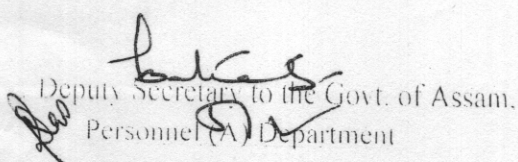 Deputy Secretary to the Govt. of Assam,
Personnel (A) Department